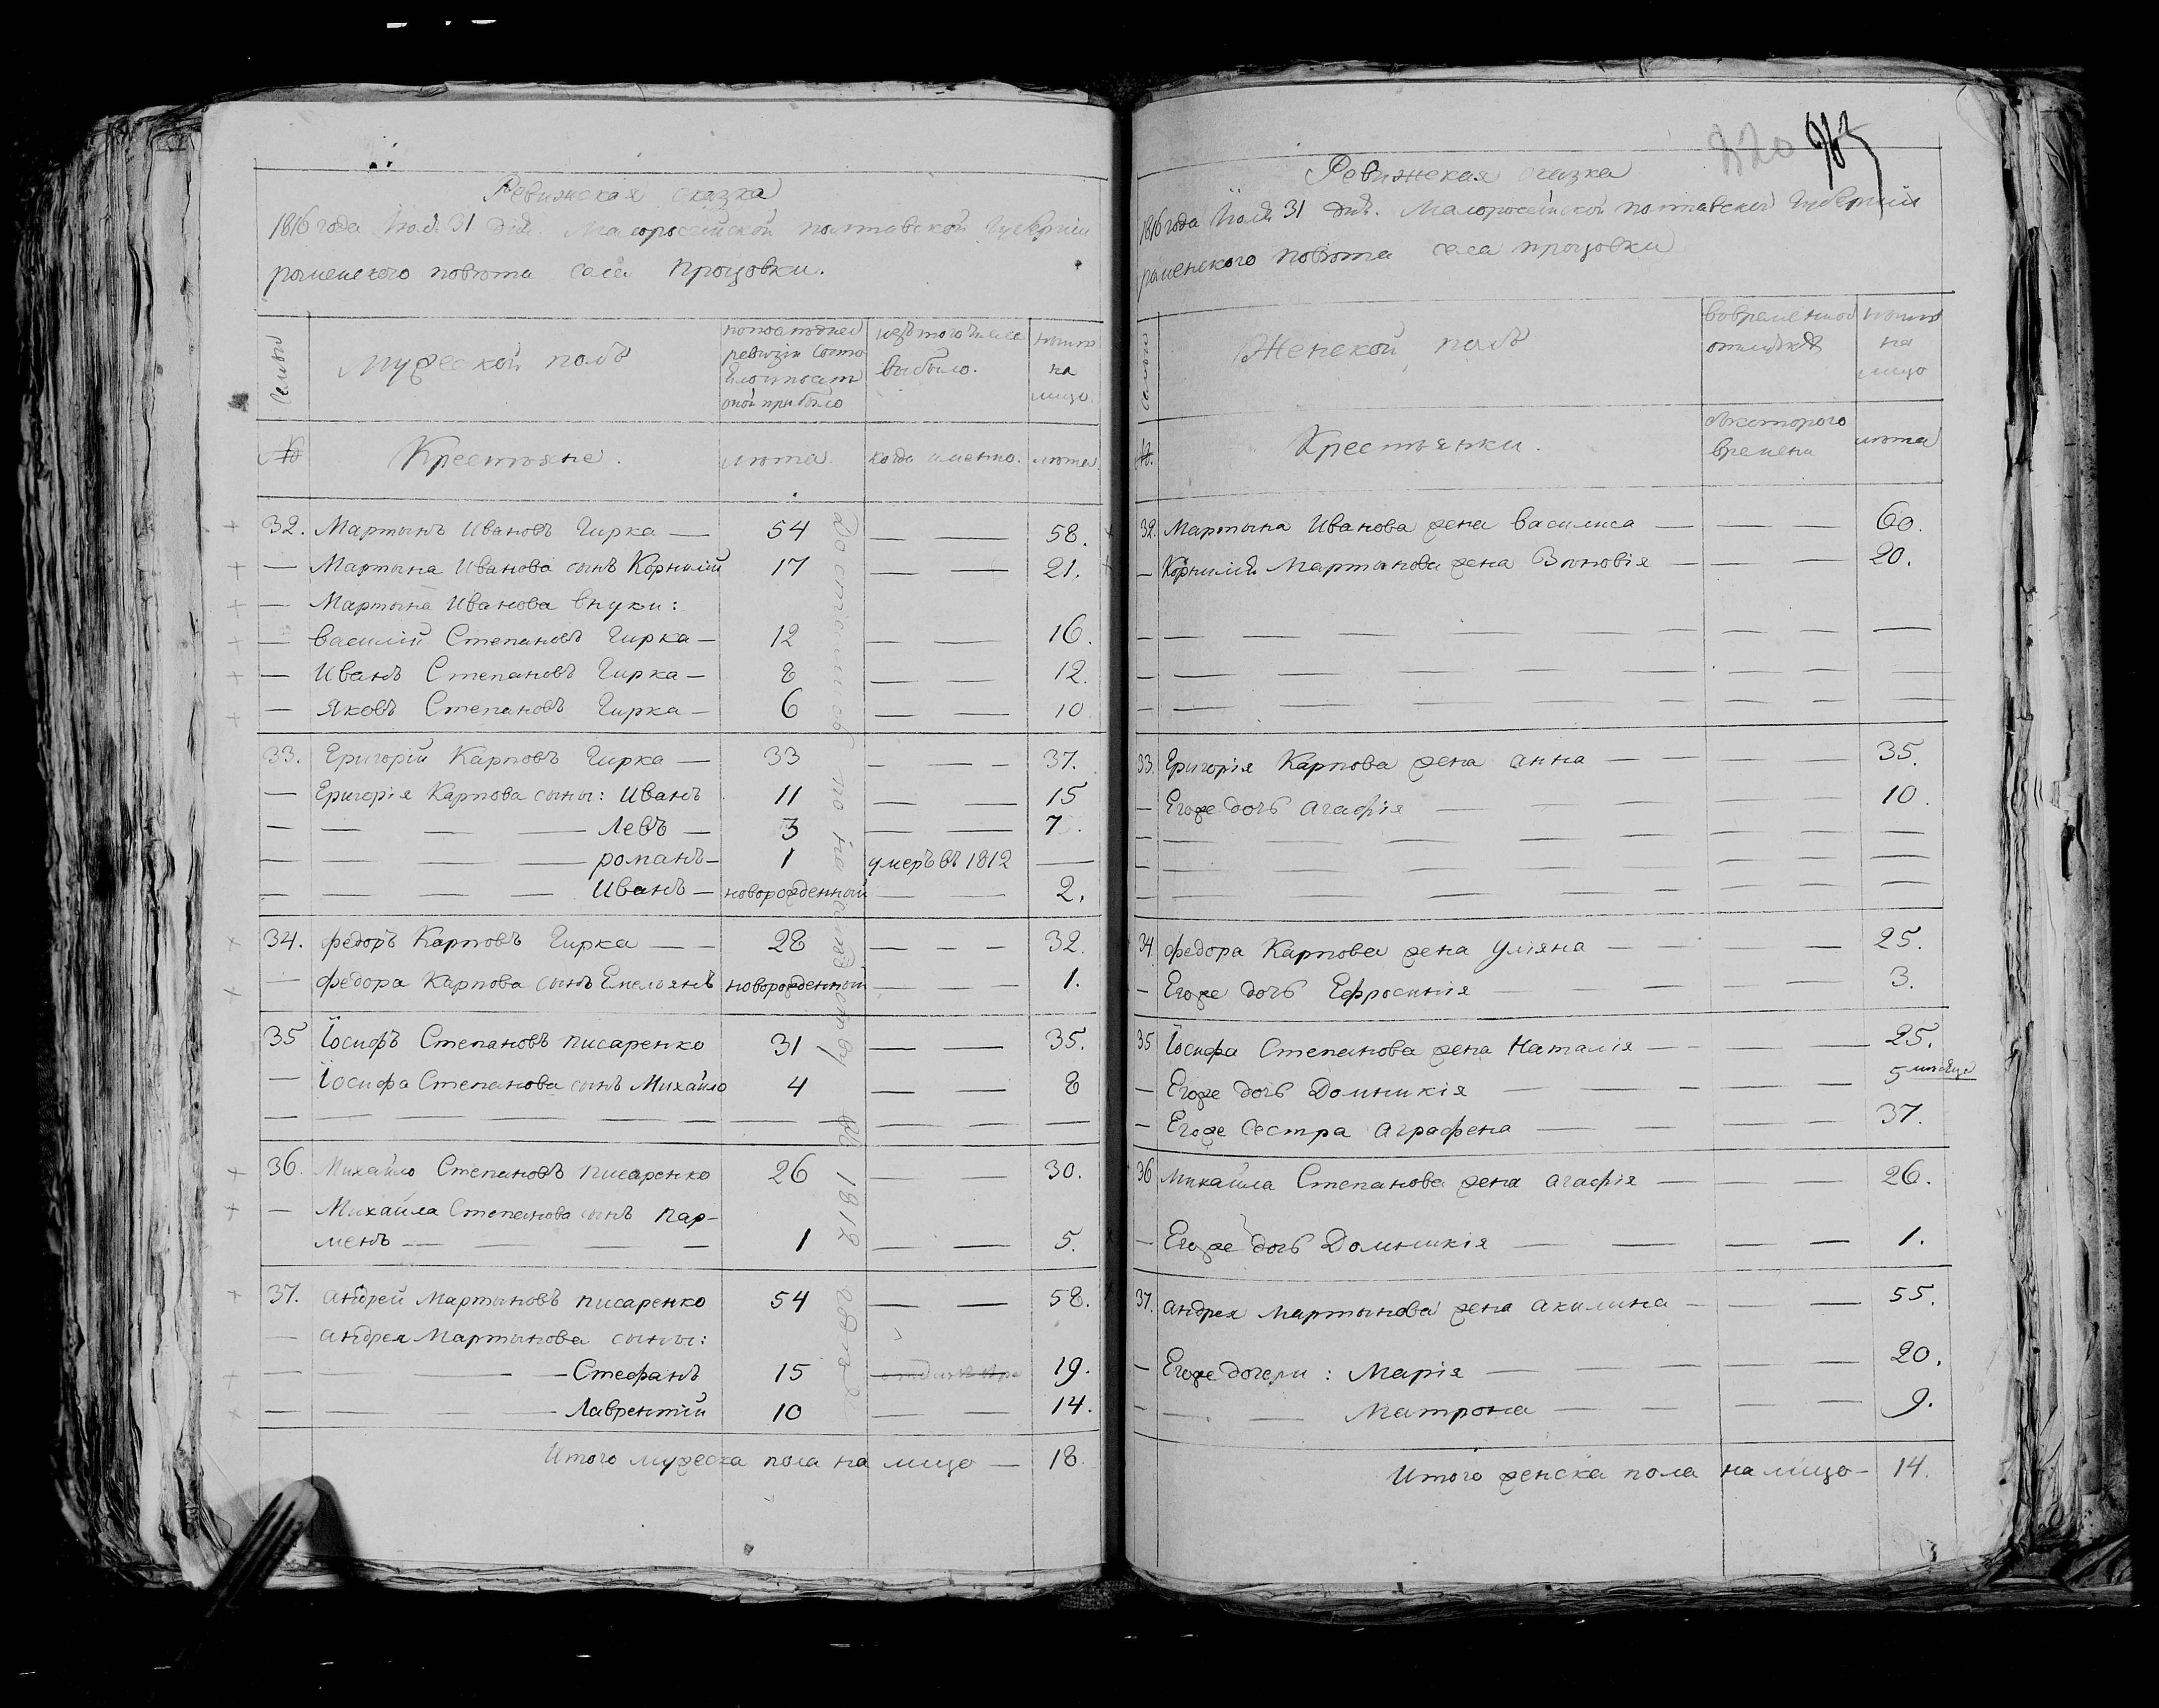 Ревижская сказка
1816 года Июля 31 дня. Малоросейской полтавской Губернии
роменского повѣта села Процовки.
Семьи
Мужеской полъ
по последней
ревизіи состо
выбыло.
на
лицо
№
Крестьяне.
лѣта.
когда именно.
лѣта.
32. Мартынъ Ивановъ Гирка — 54 — — 58.
— Мартына Иванова сынъ Корнилій 17 — — 21.
— Мартына Иванова внуки:
— Василій Степановъ Гирка — 12 — — 16.
— Иванъ Степановъ Гирка — 8 — — 12.
— Яковъ Степановъ Гирка — 6 — — 10
33. Григорій Карповъ Гирка — 33 — — — 37.
— Григорія Карпова сыны: Иванъ 11 — — 15
— — — — Левъ — 3 — — 7.
— — — — романъ — 1 умеръ въ 1812 —
— — — — Иванъ — новорожденный — — 2.
34. федоръ Карповъ Гирка — — 28 — — — 32.
— федора Карпова сынъ Емельянъ новорожденный — — — 1.
35 Іосифъ Степановъ писаренко 31 — — 35.
— Іосифа Степанова сынъ Михайло 4 — — 8
— — — — — — — — —
36. Михайло Степановъ писаренко 26 — — 30.
— Михайла Степанова сынъ пар-
менъ — — — — 1 — — 5.
37. андрей Мартыновъ писаренко 54 — — 58.
— андрея Мартынова сыны:
— — — — Стефанъ 15 19.
— — — — Лаврентій 10 — — 14.
Итого мужеска пола на лицо — 18.
по 1812
320 983
Ревижская сказка
1816 года Июля 31 дня. Малоросейской полтавской Губернии
роменского повѣта села процовки
Семьи
Женской полъ
во временной
отлучкѣ
на
лицо
№.
Крестьянки.
съ которого
времени
лѣта
32. Мартына Иванова жена василиса — — — 60.
— Корнилія Мартынова жена Зиновія — — — 20.
— — — — — — — —
— — — — — — — —
— — — — — — — —
33. Григорія Карпова жена анна — — — — 35.
— Егоже дочь агафія — — — — 10.
— — — — — — — —
— — — — — — — —
— — — — — — — —
34 федора Карпова жена Уліяна — — — 25.
— Егоже дочь Ефросинія — — — — 3.
35 Іосифа Степанова жена Наталія — — — — 25.
— Егоже дочь Домникія — — — — 5 месяцо
— Егоже сестра аграфена — — — — 37.
36 Михайла Степанова жена агафія — — — 26.
— Егоже дочь Домникія — — — — 1.
37. андрея Мартынова жена акилина — — — 55.
— Егоже дочери: Марія — — — — 20.
— — — Матрона — — — — 9.
Итого женска пола на лицо — 14.